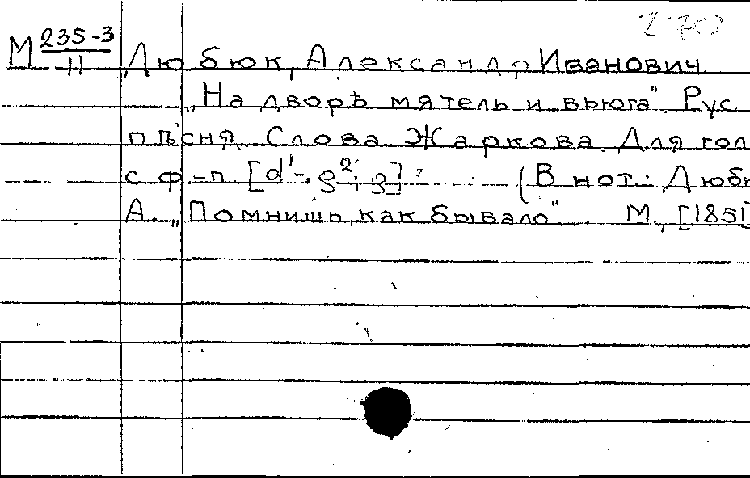 М 235-3
11
Дюбюк, Александр Иванович.
„На дворѣ мятель и вьюга" Рус.
пѣсня. Слова Жаркова. Для гол.
с ф-п. [d¹-g²; g]: (В нот: Дюбю
А. „Помнишь, как бывало" М., [1851]